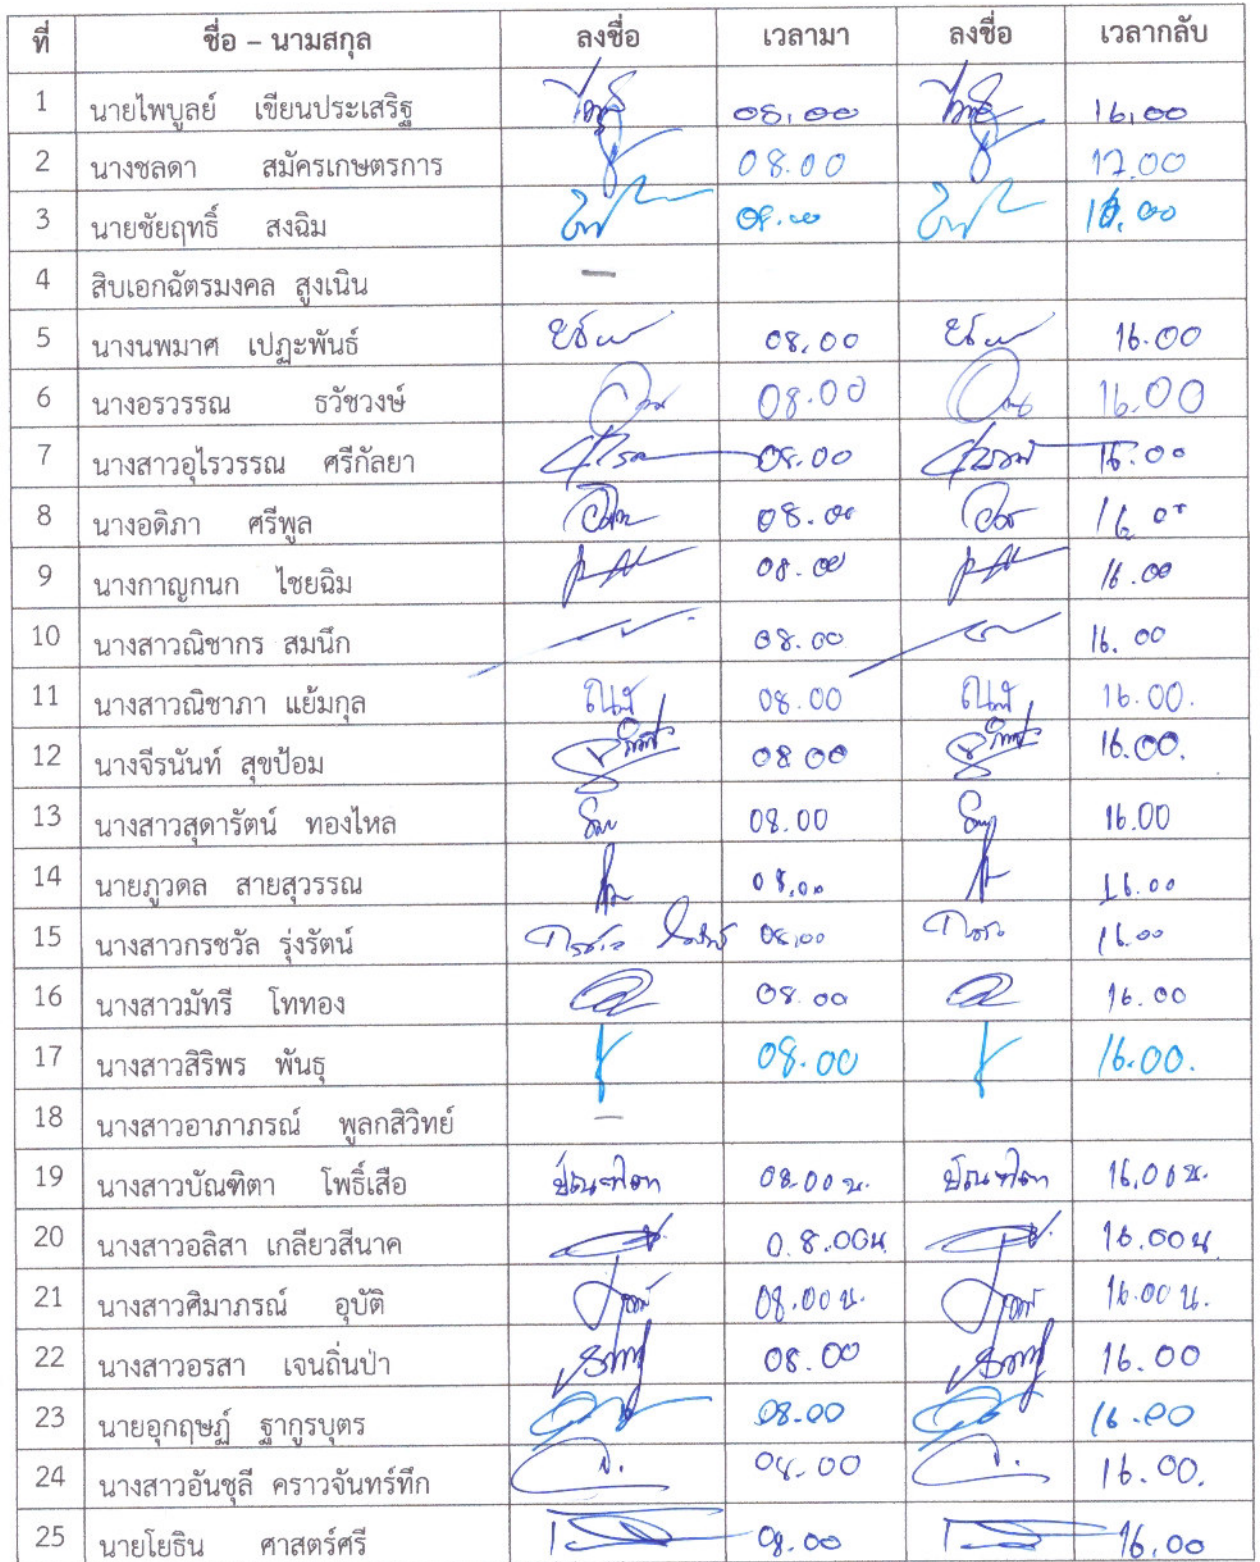 ที่ ชื่อ – นามสกุล ลงชื่อ เวลามา ลงชื่อ เวลากลับ
1 นายไพบูลย์ เขียนประเสริฐ 08.00 16.00
2 นางชลดา สมัครเกษตรการ 08.00 17.00
3 นายชัยฤทธิ์ สงฉิม 08.00 16.00
4 สิบเอกฉัตรมงคล สูงเนิน –
5 นางนพมาศ เปฏะพันธ์ 08.00 16.00
6 นางอรวรรณ ธวัชวงษ์ 08.00 16.00
7 นางสาวอุไรวรรณ ศรีกัลยา 08.00 16.00
8 นางอดิภา ศรีพูล 08.00 16.00
9 นางกาญกนก ไชยฉิม 08.00 16.00
10 นางสาวณิชากร สมนึก 08.00 16.00
11 นางสาวณิชาภา แย้มกุล 08.00 16.00.
12 นางจีรนันท์ สุขป้อม 08.00 16.00.
13 นางสาวสุดารัตน์ ทองไหล 08.00 16.00
14 นายภูวดล สายสุวรรณ 08.00 16.00
15 นางสาวกรชวัล รุ่งรัตน์ 08.00 16.00
16 นางสาวมัทรี โททอง 08.00 16.00
17 นางสาวสิริพร พันธุ 08.00 16.00.
18 นางสาวอาภาภรณ์ พูลกสิวิทย์ –
19 นางสาวบัณฑิตา โพธิ์เสือ บัณฑิตา 08.00 น. บัณฑิตา 16.00 น.
20 นางสาวอลิสา เกลียวสีนาค 0.8.00น 16.00น
21 นางสาวศิมาภรณ์ อุบัติ 08.00 น. 16.00 น.
22 นางสาวอรสา เจนถิ่นป่า 08.00 16.00
23 นายอุกฤษฏ์ ฐากูรบุตร 08.00 16.00
24 นางสาวอันชุลี คราวจันทร์ทึก 08.00 16.00.
25 นายโยธิน ศาสตร์ศรี 08.00 16.00